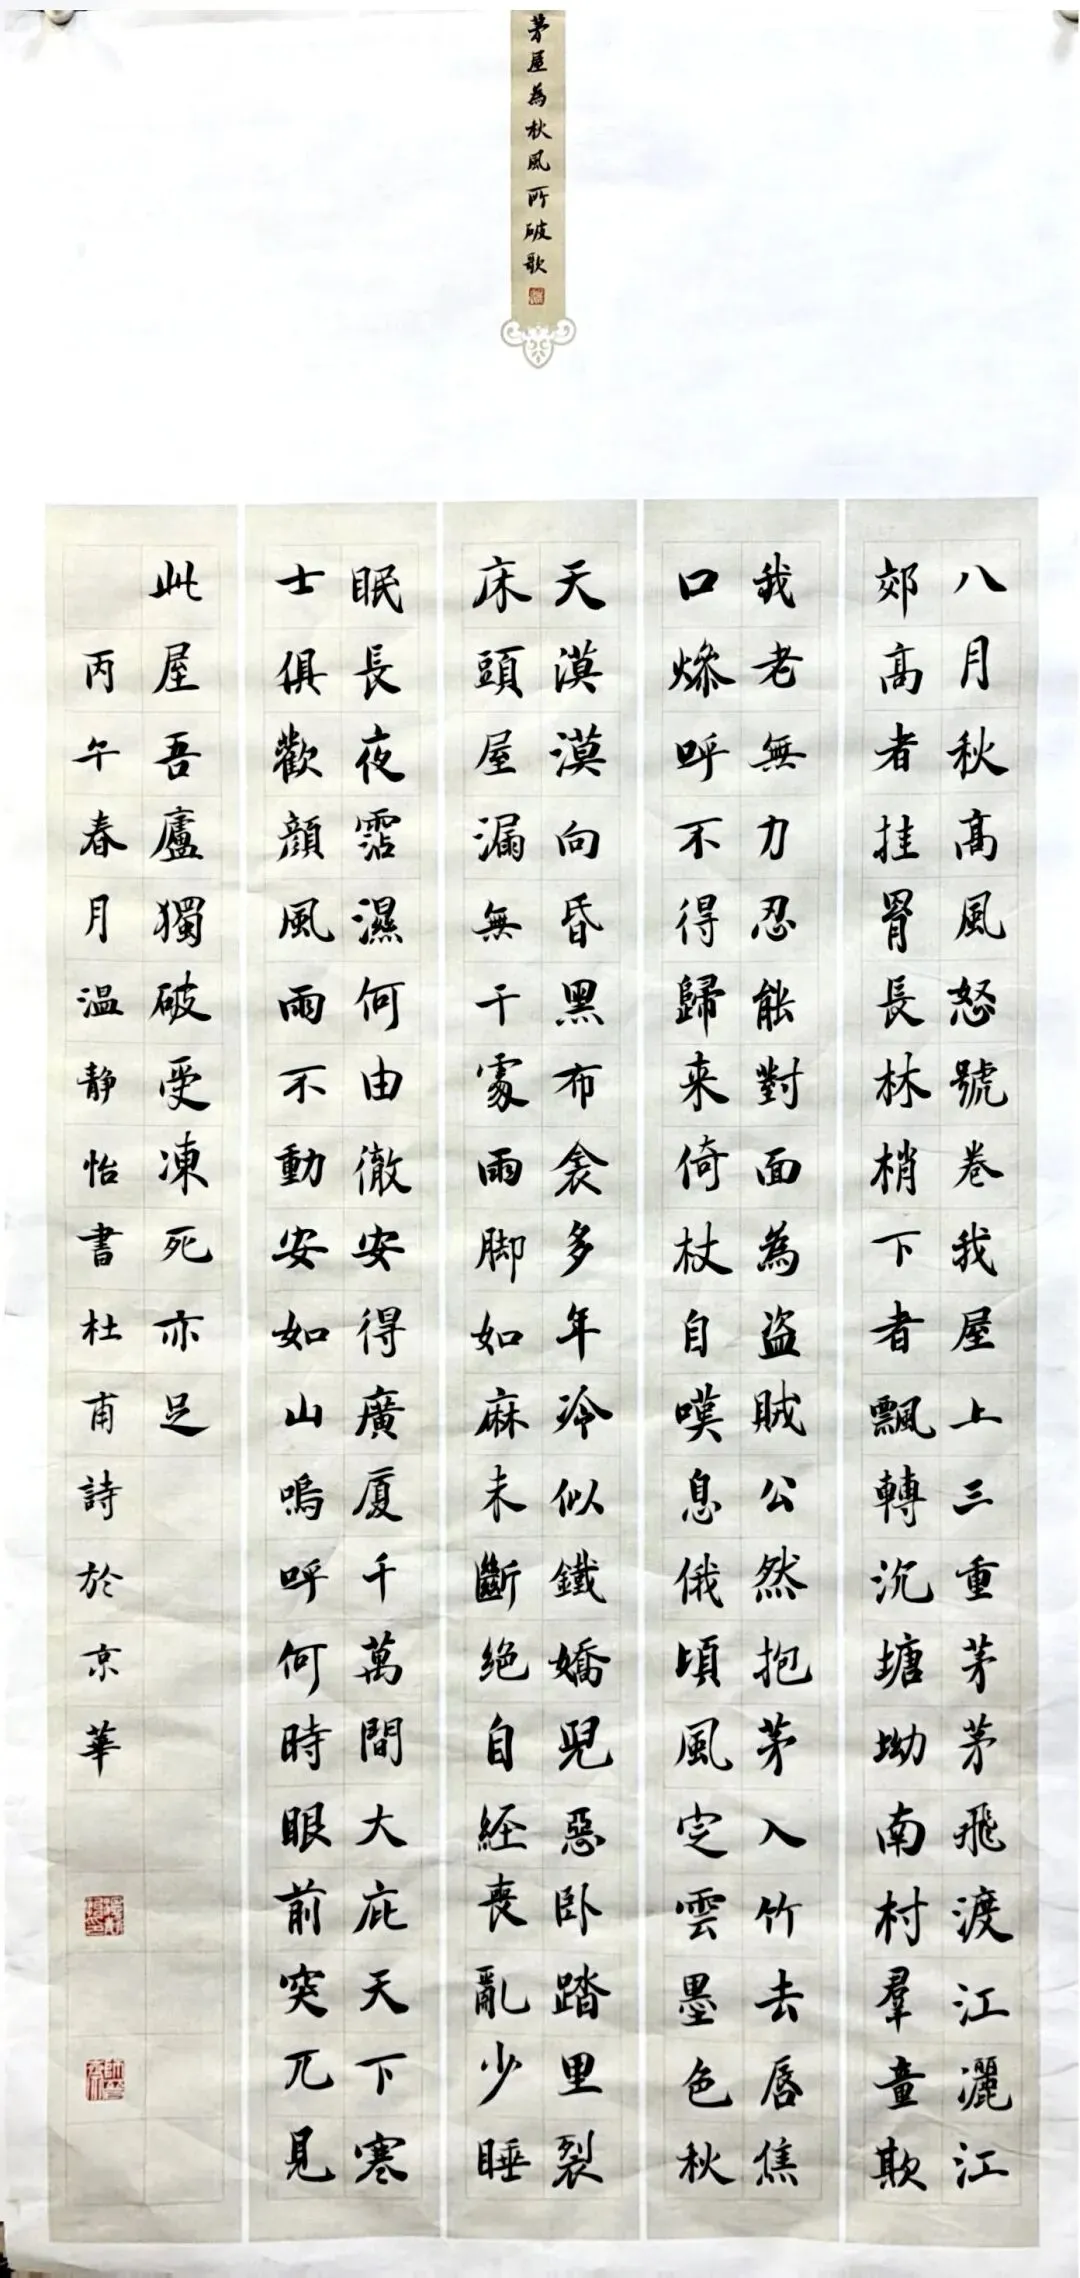 茅屋為秋風所破歌
八月秋高風怒號卷我屋上三重茅茅飛渡江灑江
郊高者挂罥長林梢下者飄轉沉塘坳南村羣童欺
我老無力忍能對面為盜賊公然抱茅入竹去唇焦
口燥呼不得歸来倚杖自嘆息俄頃風定雲墨色秋
天漠漠向昏黑布衾多年冷似鐵嬌兒惡卧踏里裂
床頭屋漏無干處雨脚如麻未斷絕自經喪亂少睡
眠長夜霑濕何由徹安得廣厦千萬間大庇天下寒
士俱歡顏風雨不動安如山嗚呼何時眼前突兀見
此屋吾廬獨破受凍死亦足
丙午春月温静怡書杜甫詩於京華